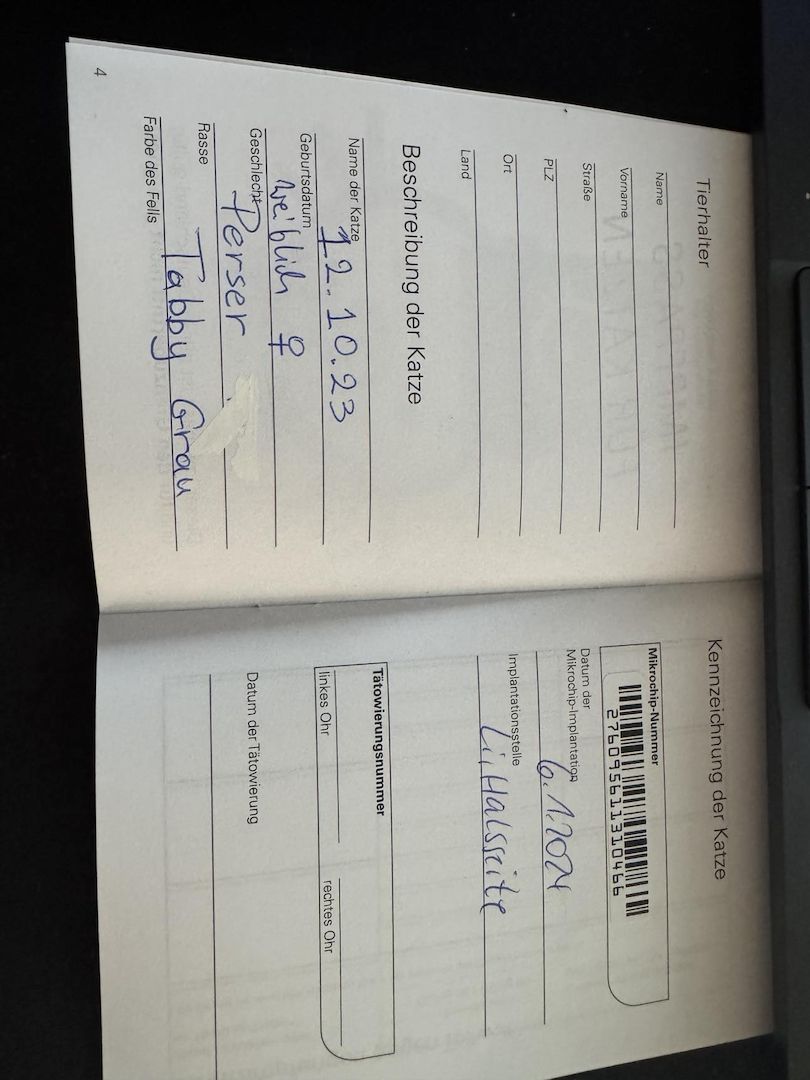 Tierhalter
Name
Vorname
Straße
PLZ
Ort
Land
Beschreibung der Katze
Name der Katze
12.10.23
Geburtsdatum
weiblich ♀
Geschlecht
Perser
Rasse
Tabby Grau
Farbe des Fells
4
Kennzeichnung der Katze
Mikrochip-Nummer
276095611310466
Datum der
Mikrochip-Implantation
6.1.2024
Implantationsstelle
Li, Halsseite
Tätowierungsnummer
linkes Ohr
rechtes Ohr
Datum der Tätowierung